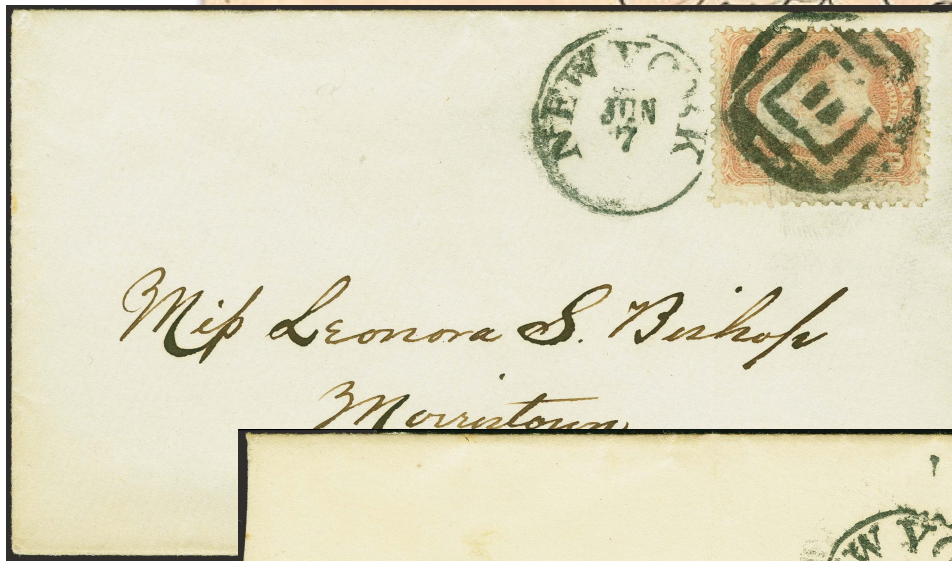 NEW YORK
JUN
7
E
Miss Leonora S. Bishop
Morristown,
W YO